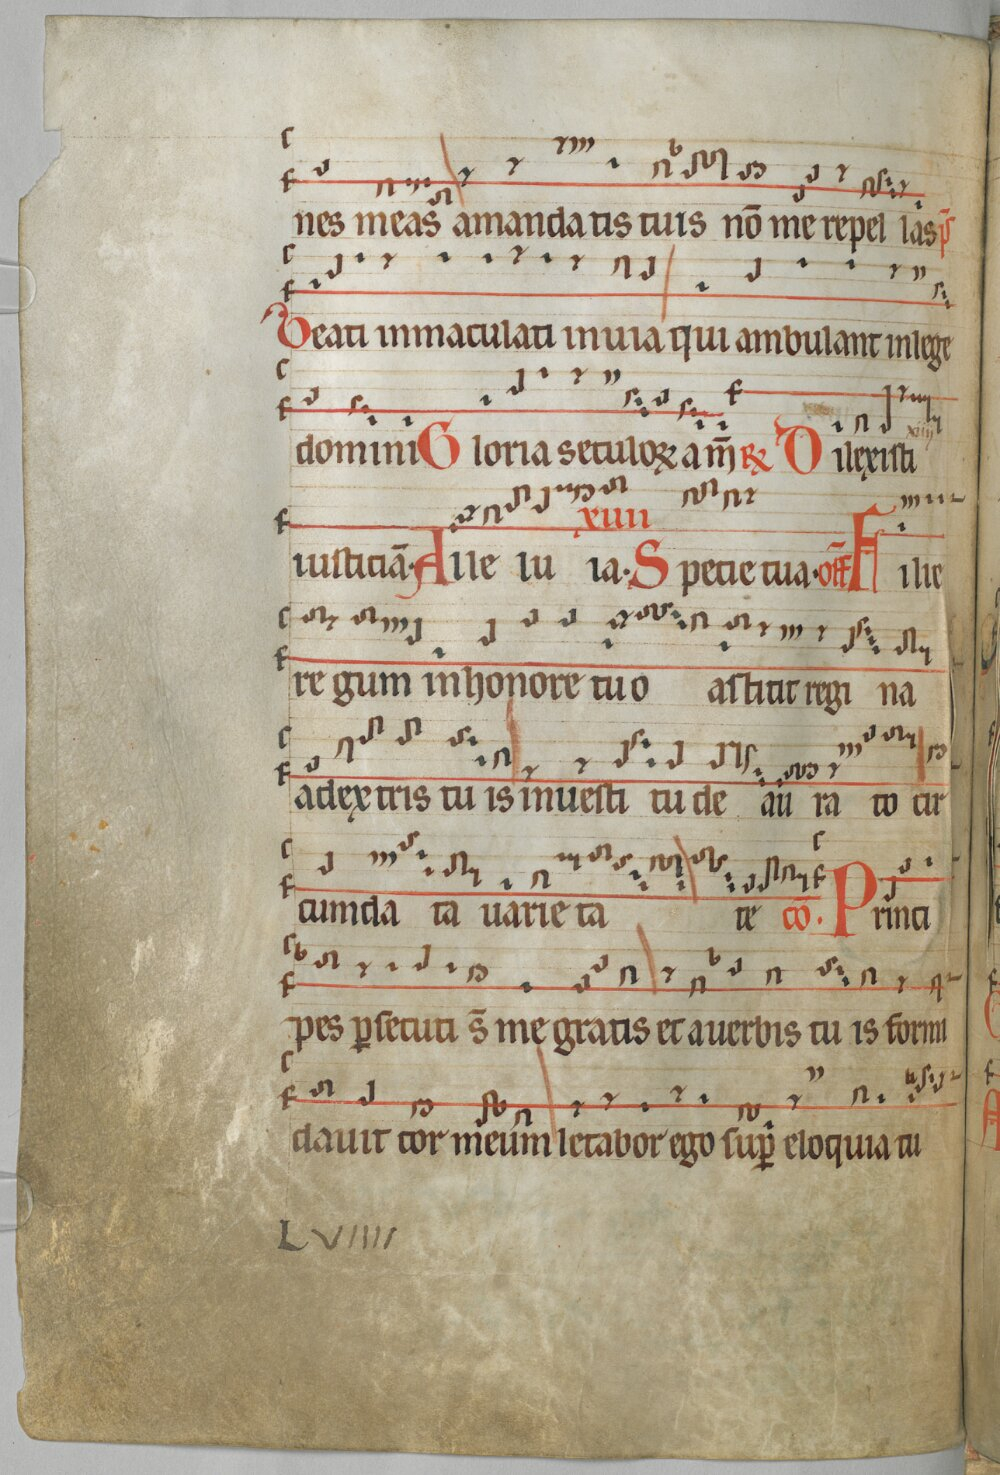 nes meas amandatis tuis nō me repel las p̄s
Beati inmaculati inuia qui ambulant inlege
domini Gloria seculoꝝ am̄ ℞ Dilexisti
xiiii
iusticiā. Alle lu ia. Specie tua. off̄ Filie
regum inhonore tuo astitit regi na
adextris tu is inuesti tu de au ra to cir
cumda ta uarie ta te cō. Princi
pes ꝑsecuti s̄ me gratis et auerbis tu is formi
dauit cor meum letabor ego suꝑ eloquia tu
LVIIII